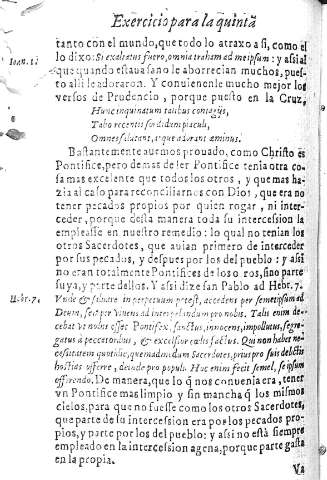 Exercicio para la quintã
tanto con el mundo, que todo lo atraxo a si, como el
Ioan. 12
lo dixo: Si exaltatus fuero, omnia traham ad me ipsum: y assi al
que quando estaua sano le aborrecian muchos, pues-
to alli le adoraron. Y conuienenle mucho mejor los
versos de Prudencio, porque puesto en la Cruz,
Hunc inquinatum talibus contagijs,
Tabo recentis sordidum piaculi,
Omnes salutant, atque adorant eminus.
Bastantemente auemos prouado, como Christo es
Pontifice, pero demas de ser Pontifice tenia otra co-
sa mas excelente que todos los otros, y que mas ha-
zia al caso para reconciliarnos con Dios, que era no
tener pecados propios por quien rogar, ni inter-
ceder, porque desta manera toda su intercession la
empleasse en nuestro remedio: lo qual no tenian los
otros Sacerdotes, que auian primero de interceder
por sus pecados, y despues por los del pueblo: y assi
no eran totalmente Pontifices de los otros, sino parte
suya, y parte dellos. Y assi dize san Pablo ad Hebr. 7.
Hebr. 7.
Vnde & saluare in perpetuum potest, accedens per semetipsum ad
Deum, semper viuens ad interpellandum pro nobis. Talis enim de-
cebat vt nobis esset Pontifex, sanctus, innocens, impollutus, segre-
gatus à peccatoribus, & excelsior cælis factus. Qui non habet ne-
cessitatem quotidie, quemadmodum Sacerdotes, prius pro suis delictis
hostias offerre, deinde pro populi. Hoc enim fecit semel, se ipsum
offerendo. De manera, que lo q̃ nos conuenia era, tener
vn Pontifice mas limpio y sin mancha q̃ los mismos
cielos, para que no fuesse como los otros Sacerdotes,
que parte de su intercession era por los pecados pro-
pios, y parte por los del pueblo: y assi no està siempre
empleado en la intercession agena, porque parte gasta
en la propia.